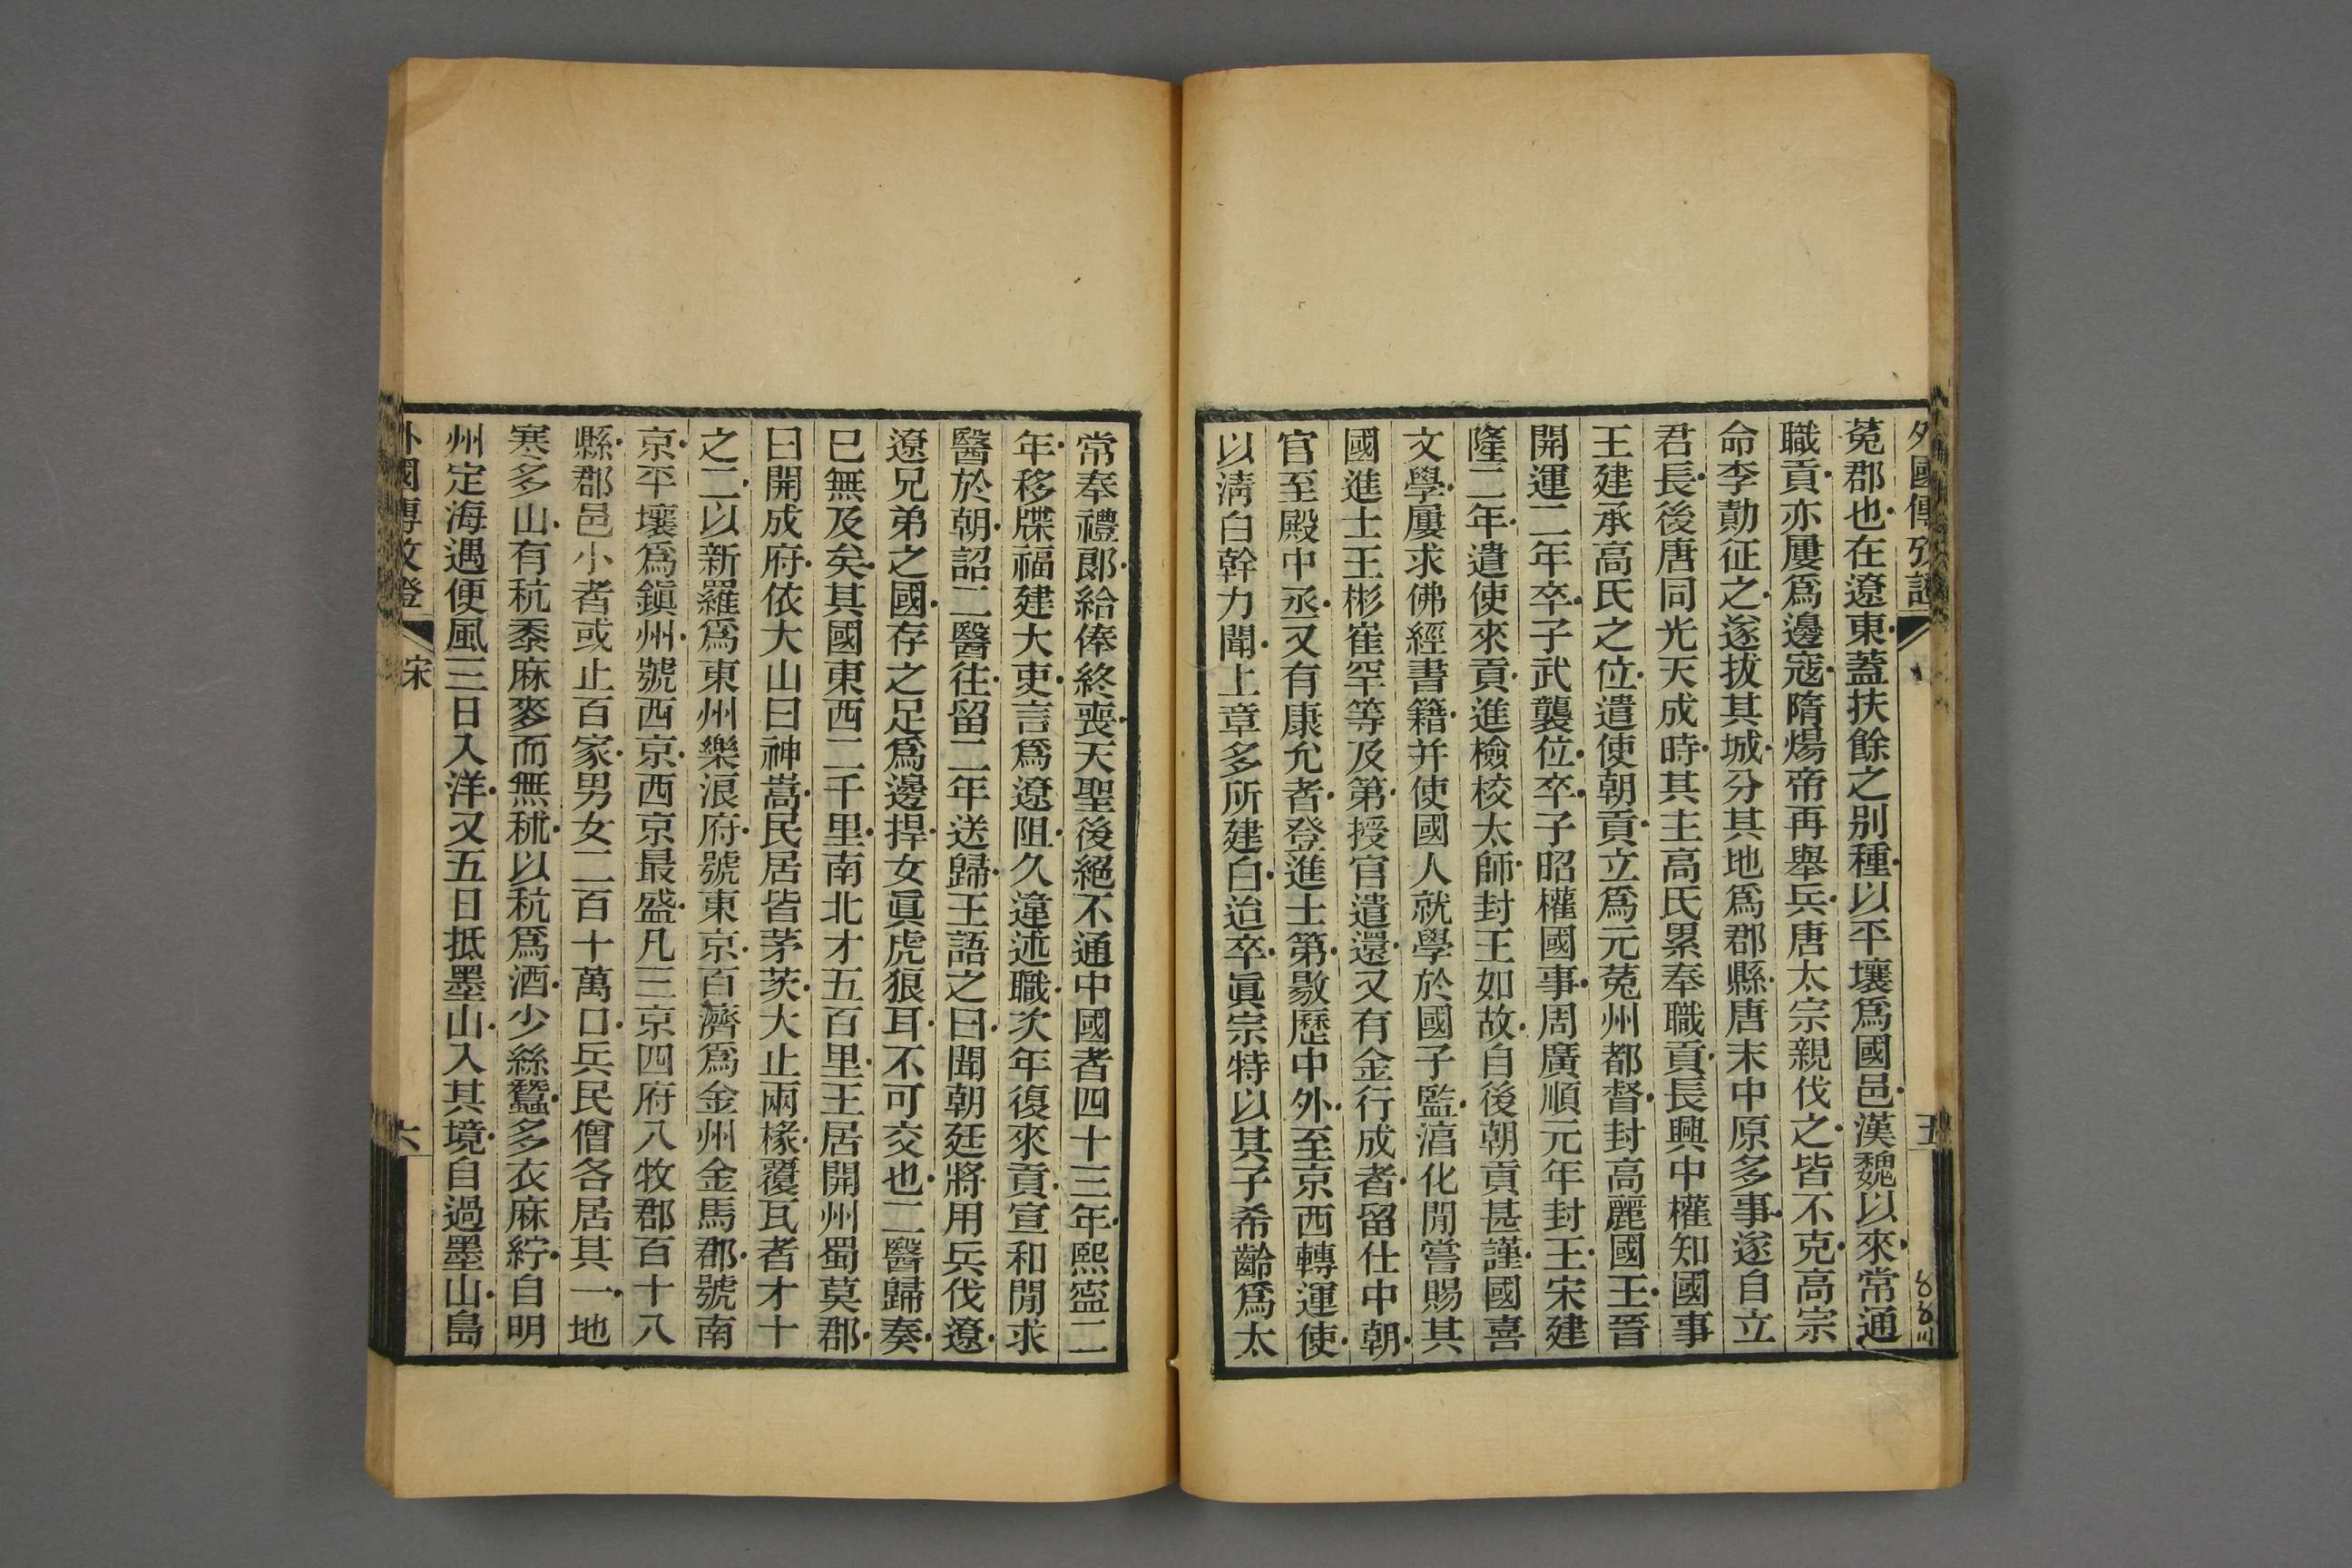 外國傳攷證 五
菟郡也在遼東蓋扶餘之別種以平壤爲國邑漢魏以來常通
職貢亦屢爲邊寇隋煬帝再舉兵唐太宗親伐之皆不克高宗
命李勣征之遂拔其城分其地爲郡縣唐末中原多事遂自立
君長後唐同光天成時其主高氏累奉職貢長興中權知國事
王建承高氏之位遣使朝貢立爲元菟州都督封高麗國王晉
開運二年卒子武襲位卒子昭權國事周廣順元年封王宋建
隆二年遣使來貢進檢校太師封王如故自後朝貢甚謹國喜
文學屢求佛經書籍并使國人就學於國子監淳化閒嘗賜其
國進士王彬崔罕等及第授官遣還又有金行成者留仕中朝
官至殿中丞又有康允者登進士第敭歷中外至京西轉運使
以淸白幹力聞上章多所建白迨卒眞宗特以其子希齡爲太
常奉禮郞給俸終喪天聖後絕不通中國者四十三年熙寍二
年移牒福建大吏言爲遼阻久違述職次年復來貢宣和閒求
醫於朝詔二醫往留二年送歸王語之曰聞朝廷將用兵伐遼
遼兄弟之國存之足爲邊捍女眞虎狼耳不可交也二醫歸奏
已無及矣其國東西二千里南北才五百里王居開州蜀莫郡
曰開成府依大山曰神嵩民居皆茅茨大止兩椽覆瓦者才十
之二以新羅爲東州樂浪府號東京百濟爲金州金馬郡號南
京平壤爲鎭州號西京西京最盛凡三京四府八牧郡百十八
縣郡邑小者或止百家男女二百十萬口兵民僧各居其一地
寒多山有秔黍麻麥而無秫以秔爲酒少絲蠶多衣麻紵自明
州定海遇便風三日入洋又五日抵墨山入其境自過墨山島
外國傳攷證 宋 六